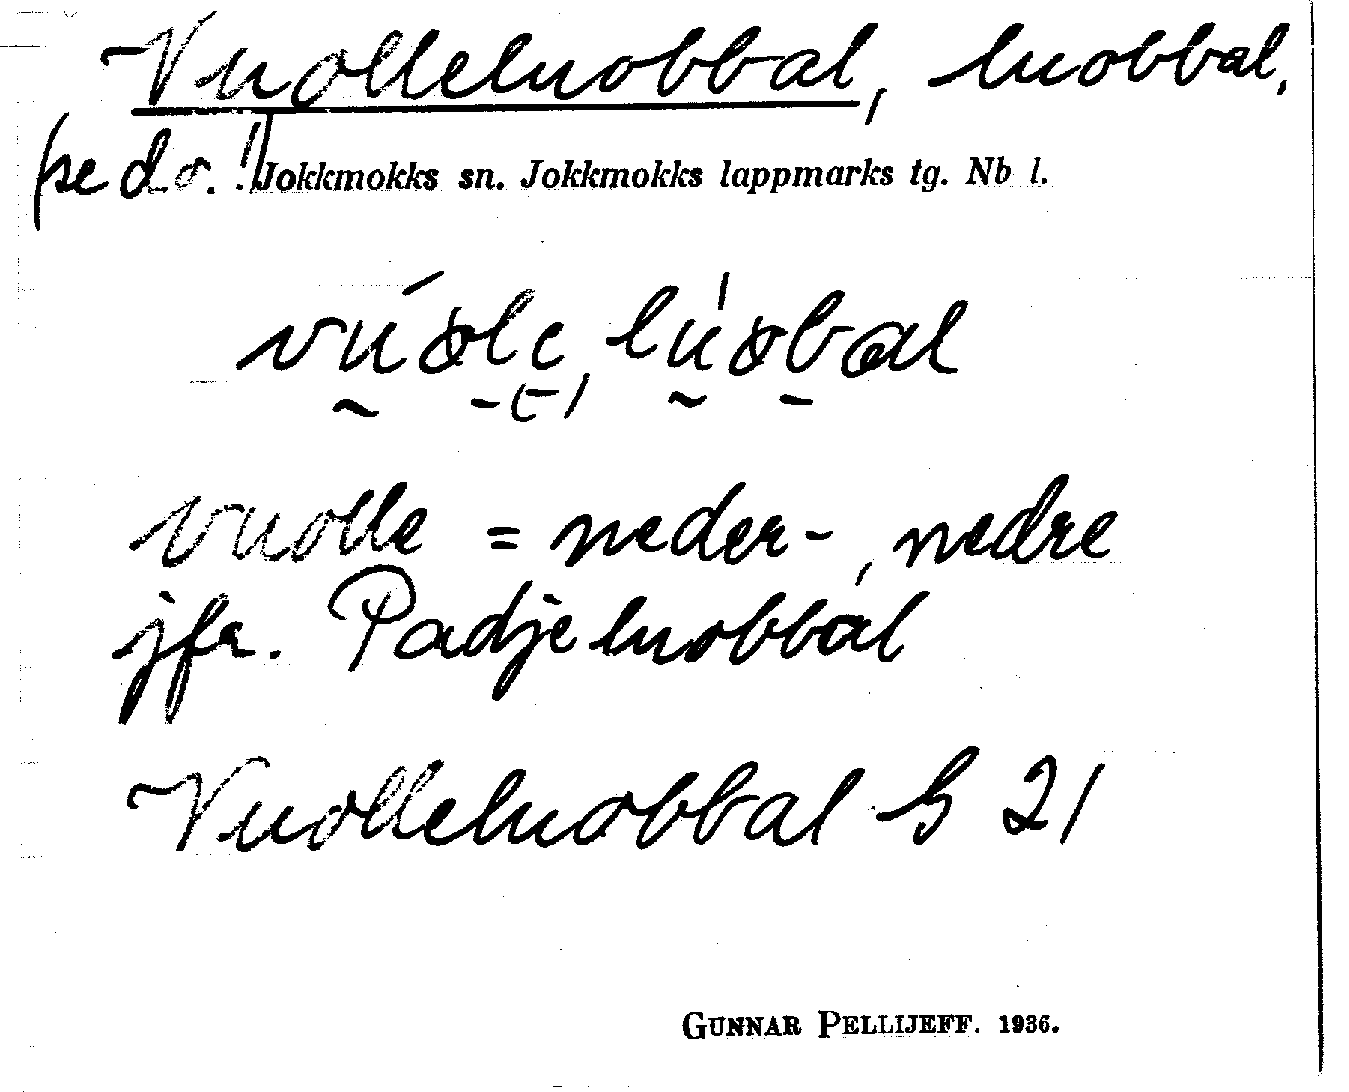 Vuolleluobbal, luobbal,
(se d. o.!) Jokkmokks sn. Jokkmokks lappmarks tg. Nb l.
vuolle = neder-, nedre
jfr. Padjeluobbal
Vuolleluobbal G 21
GUNNAR PELLIJEFF. 1936.